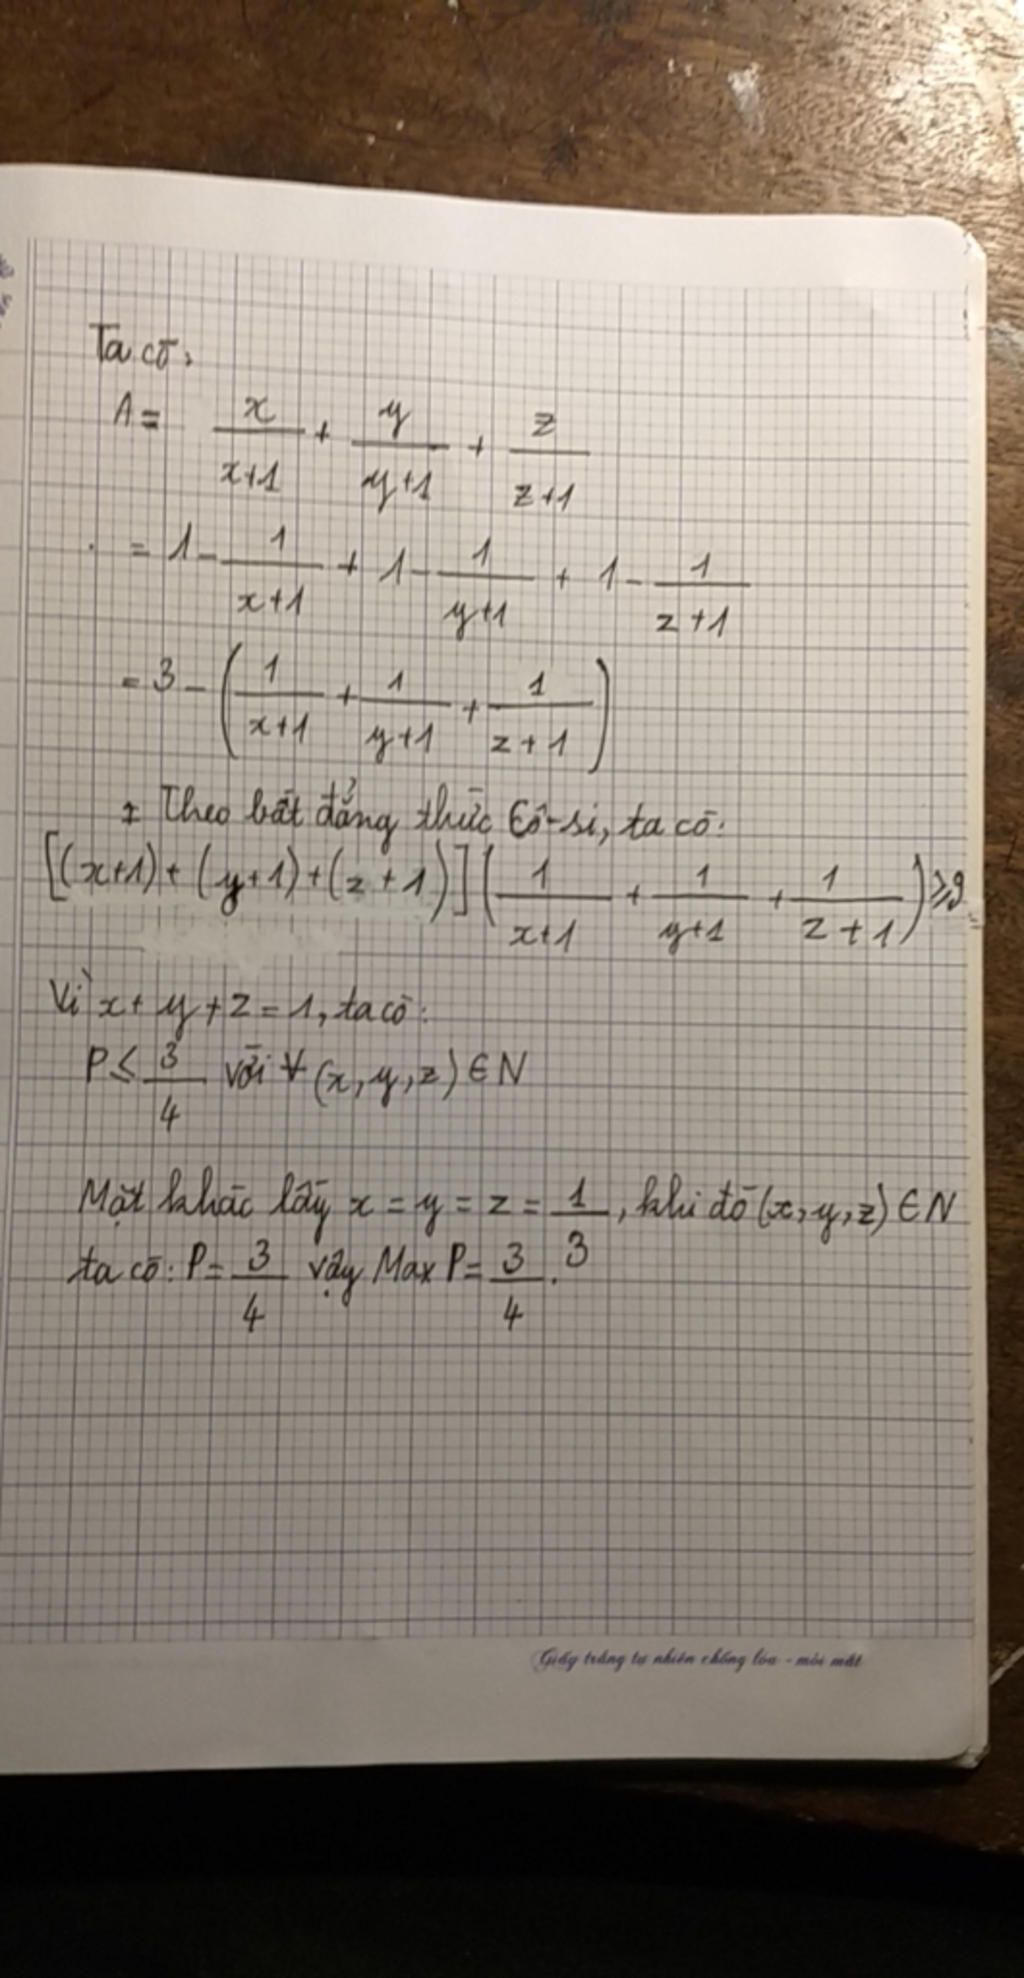 Ta có:
A = x/(x+1) + y/(y+1) + z/(z+1)
= 1 - 1/(x+1) + 1 - 1/(y+1) + 1 - 1/(z+1)
= 3 - (1/(x+1) + 1/(y+1) + 1/(z+1))
Theo bất đẳng thức Cô-si, ta có:
[(x+1) + (y+1) + (z+1)] (1/(x+1) + 1/(y+1) + 1/(z+1)) ≥ 9
Vì x + y + z = 1, ta có:
P ≤ 3/4 với ∀ (x, y, z) ∈ N
Mặt khác lấy x = y = z = 1/3, khi đó (x, y, z) ∈ N
ta có: P = 3/4 vậy Max P = 3/4.
Giấy trắng tự nhiên chống lóa - mỏi mắt